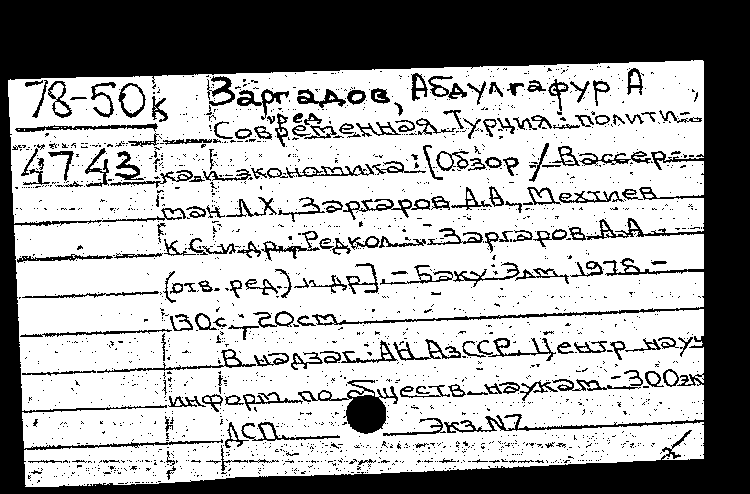 78-50к Заргадов, Абдулгафур А
ред
Современная Турция: полити-
4743 ка и экономика: [Обзор / Вассер-
ман Л.Х., Заргаров А.А., Мехтиев
К.С. и др.; Редкол.: Заргаров А.А
(отв. ред.) и др]. - Баку: Элм, 1978. -
130с.; 20см.
В надзаг.: АН АзССР. Центр науч
информ. по обществ. наукам. - 300эк
ДСП. Экз. N7